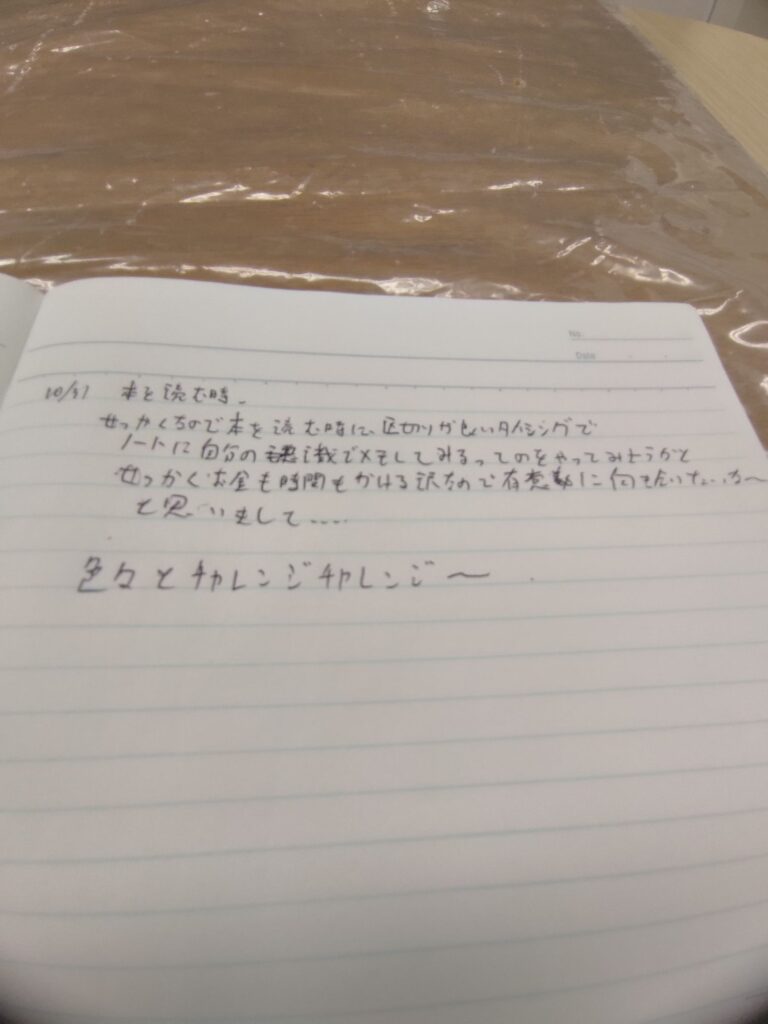 No.
Date
10/31 本を読む時。
せっかくなので本を読む時に、区切りが良いタイミングで
ノートに自分の認識でメモしてみるってのをやってみようかと
せっかくお金も時間もかける訳なので有意義に何を
と思いまして.....
色々とチャレンジチャレンジ〜